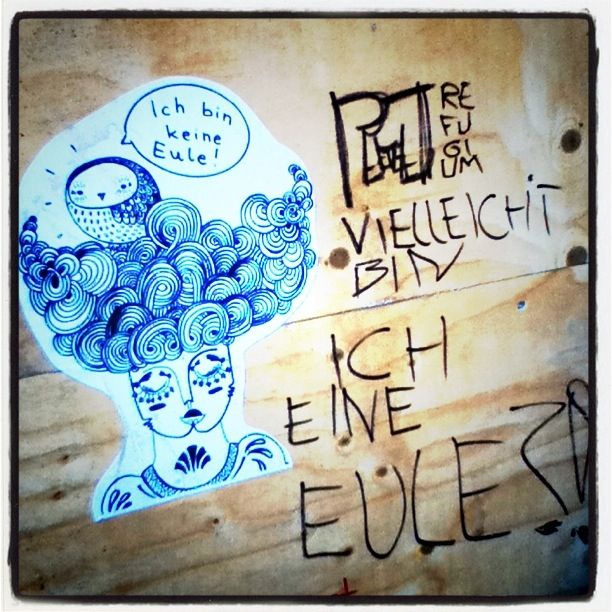 Ich bin
keine
Eule!
RE
FU
GI
UM
VIELLEICHT
BIN
ICH
EINE
EULE?